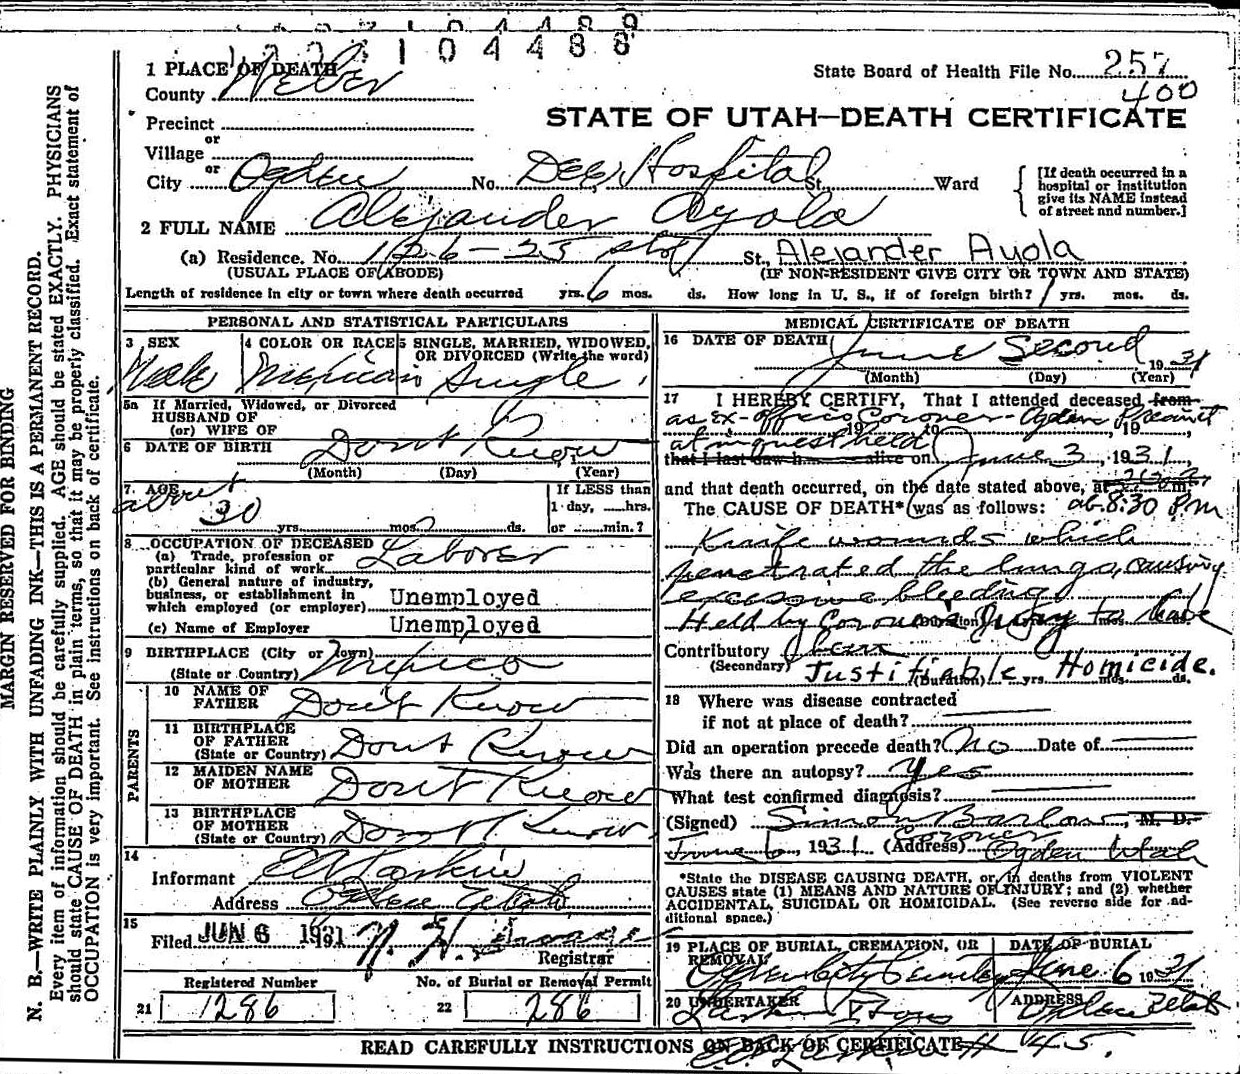 1 0 4 4 8 8
1 PLACE OF DEATH
State Board of Health File No. 257
400
County Weber
STATE OF UTAH—DEATH CERTIFICATE
Precinct
or
Village
or
City Ogden No. Dee Hospital St. Ward
[If death occurred in a hospital or institution give its NAME instead of street and number.]
2 FULL NAME Alejander Ayola
(a) Residence. No. 126 - 25 St., Alejander Ayola
(USUAL PLACE OF ABODE) (IF NON-RESIDENT GIVE CITY OR TOWN AND STATE)
Length of residence in city or town where death occurred yrs. 6 mos. ds. How long in U. S., if of foreign birth? yrs. mos. ds.
PERSONAL AND STATISTICAL PARTICULARS
3 SEX 4 COLOR OR RACE 5 SINGLE, MARRIED, WIDOWED, OR DIVORCED (Write the word)
Male Mexican Single
5a If Married, Widowed, or Divorced
HUSBAND OF
(or) WIFE OF
6 DATE OF BIRTH Dont Know
(Month) (Day) (Year)
7. AGE about
30 yrs. mos. ds.
If LESS than
1 day, hrs.
or min.?
8 OCCUPATION OF DECEASED
(a) Trade, profession or
particular kind of work Laborer
(b) General nature of industry,
business, or establishment in
which employed (or employer) Unemployed
(c) Name of Employer Unemployed
9 BIRTHPLACE (City or Town)
(State or Country) Mexico
PARENTS
10 NAME OF
FATHER Don't Know
11 BIRTHPLACE
OF FATHER
(State or Country) Dont Know
12 MAIDEN NAME
OF MOTHER Dont Know
13 BIRTHPLACE
OF MOTHER
(State or Country) Dont Know
14
Informant
Address Ogden Utah
15
Filed JUN 6 1931
Registrar
Registered Number No. of Burial or Removal Permit
21 1286 22 286
MEDICAL CERTIFICATE OF DEATH
16 DATE OF DEATH June Second 1931
(Month) (Day) (Year)
17 I HEREBY CERTIFY, That I attended deceased from
as Ex-officio Coroner Ogden Precinct
19 to 19
at inquest held
that I last saw h alive on June 3, 1931,
and that death occurred, on the date stated above, at m.
The CAUSE OF DEATH* was as follows: at 8:30 Pm
Knife wounds which
penetrated the lungs, causing
excessive bleeding
Held by Coroner's Jury to have
Contributory been
(Secondary) Justifiable Homicide.
(Duration) yrs. mos. ds.
18 Where was disease contracted
if not at place of death?
Did an operation precede death? No Date of
Was there an autopsy? yes
What test confirmed diagnosis?
(Signed) Simon Barlow, M. D.
Coroner
June 6, 1931 (Address) Ogden Utah
*State the DISEASE CAUSING DEATH, or, in deaths from VIOLENT
CAUSES state (1) MEANS AND NATURE OF INJURY; and (2) whether
ACCIDENTAL, SUICIDAL OR HOMICIDAL. (See reverse side for ad-
ditional space.)
19 PLACE OF BURIAL, CREMATION, OR REMOVAL DATE OF BURIAL
Ogden City Cemetery June 6 1931
20 UNDERTAKER ADDRESS
Larkin & Sons Ogden Utah
READ CAREFULLY INSTRUCTIONS ON BACK OF CERTIFICATE
MARGIN RESERVED FOR BINDING
N. B.—WRITE PLAINLY WITH UNFADING INK—THIS IS A PERMANENT RECORD.
Every item of information should be carefully supplied. AGE should be stated EXACTLY. PHYSICIANS
should state CAUSE OF DEATH in plain terms, so that it may be properly classified. Exact statement of
OCCUPATION is very important. See instructions on back of certificate.